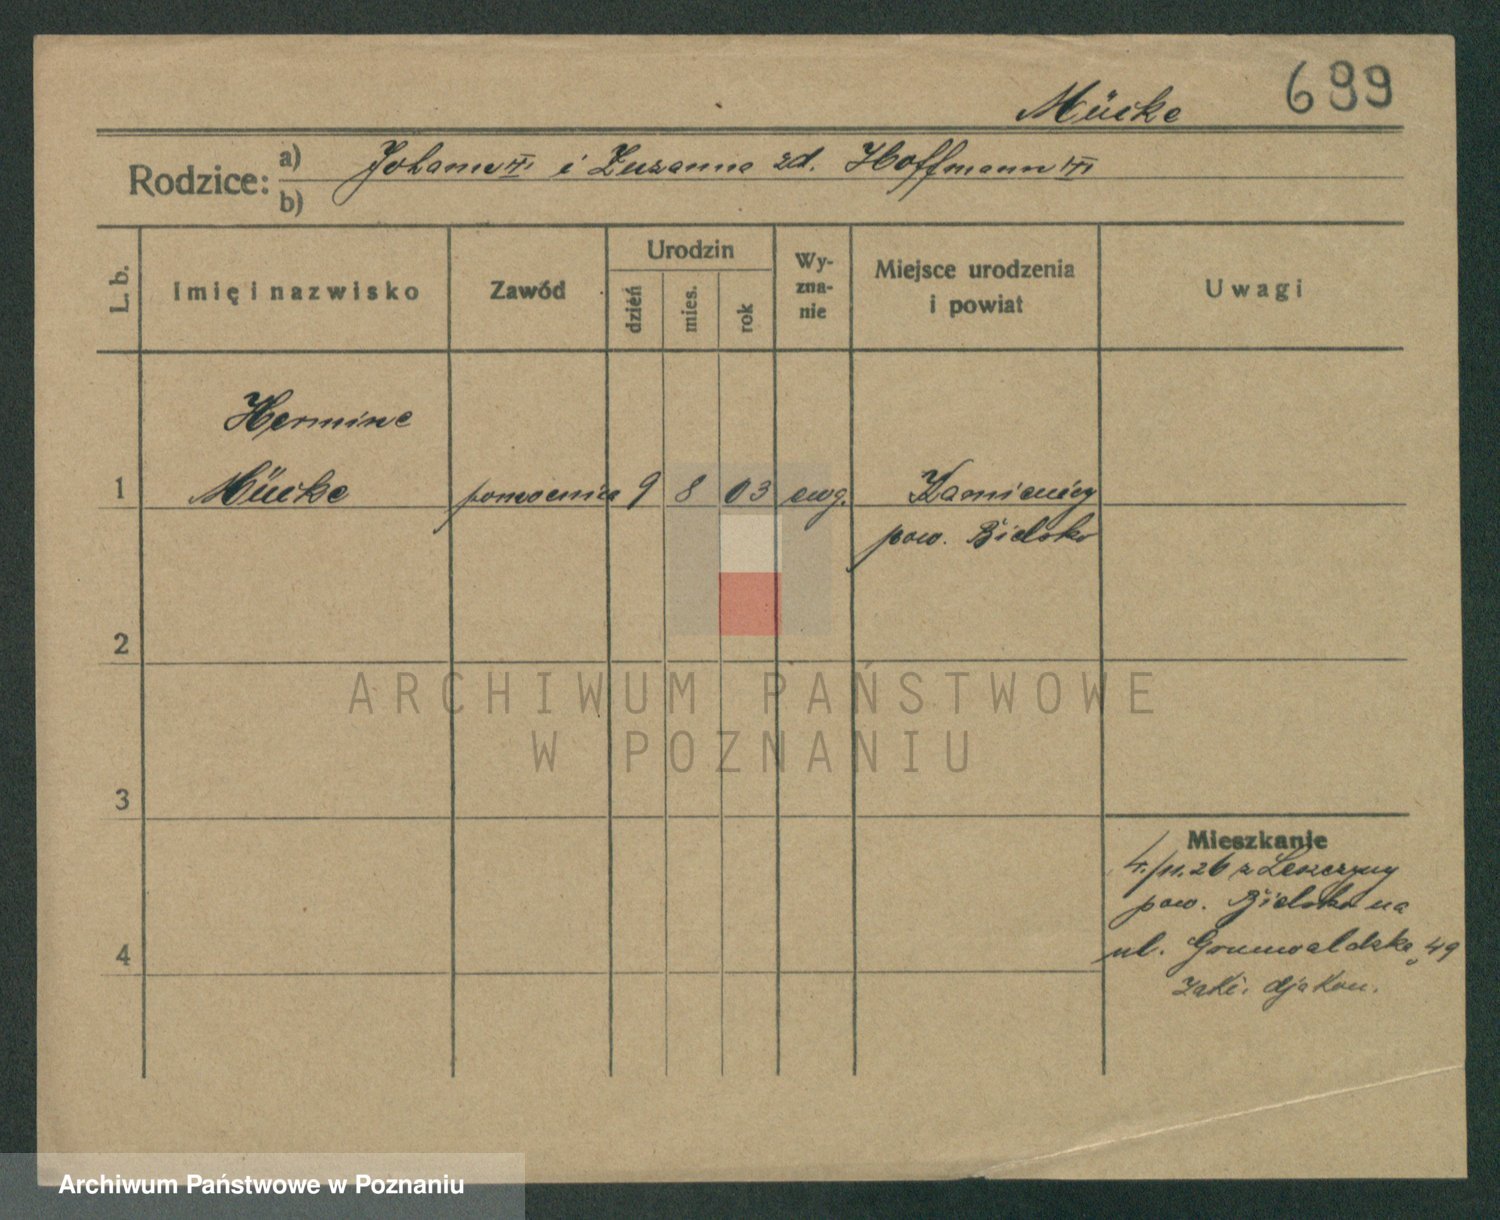 699
Mücke
Rodzice: a) Johann i Zuzanna zd. Hoffmann
b)
L. b.
Imię i nazwisko
Zawód
Urodzin
dzień
mies.
rok
Wy-
zna-
nie
Miejsce urodzenia
i powiat
Uwagi
Hermine
1 Mücke pomocnica 9 8 03 ewg. Kamienicy
pow. Bielsko
2
3
4
Mieszkanie
4./11.26 z Leszczyny
pow. Bielsko na
ul. Grunwaldzka 49
zakł. djakon.
ARCHIWUM PAŃSTWOWE
W POZNANIU
Archiwum Państwowe w Poznaniu